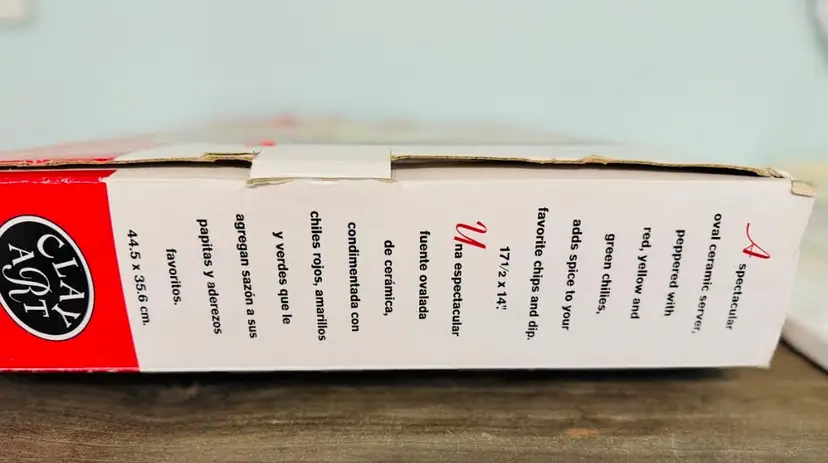 A spectacular
oval ceramic server,
peppered with
red, yellow and
green chilies,
adds spice to your
favorite chips and dip.
17 1/2 x 14".
Una espectacular
fuente ovalada
de cerámica,
condimentada con
chiles rojos, amarillos
y verdes que le
agregan sazón a sus
papitas y aderezos
favoritos.
44.5 x 35.6 cm.
CLAY
ART